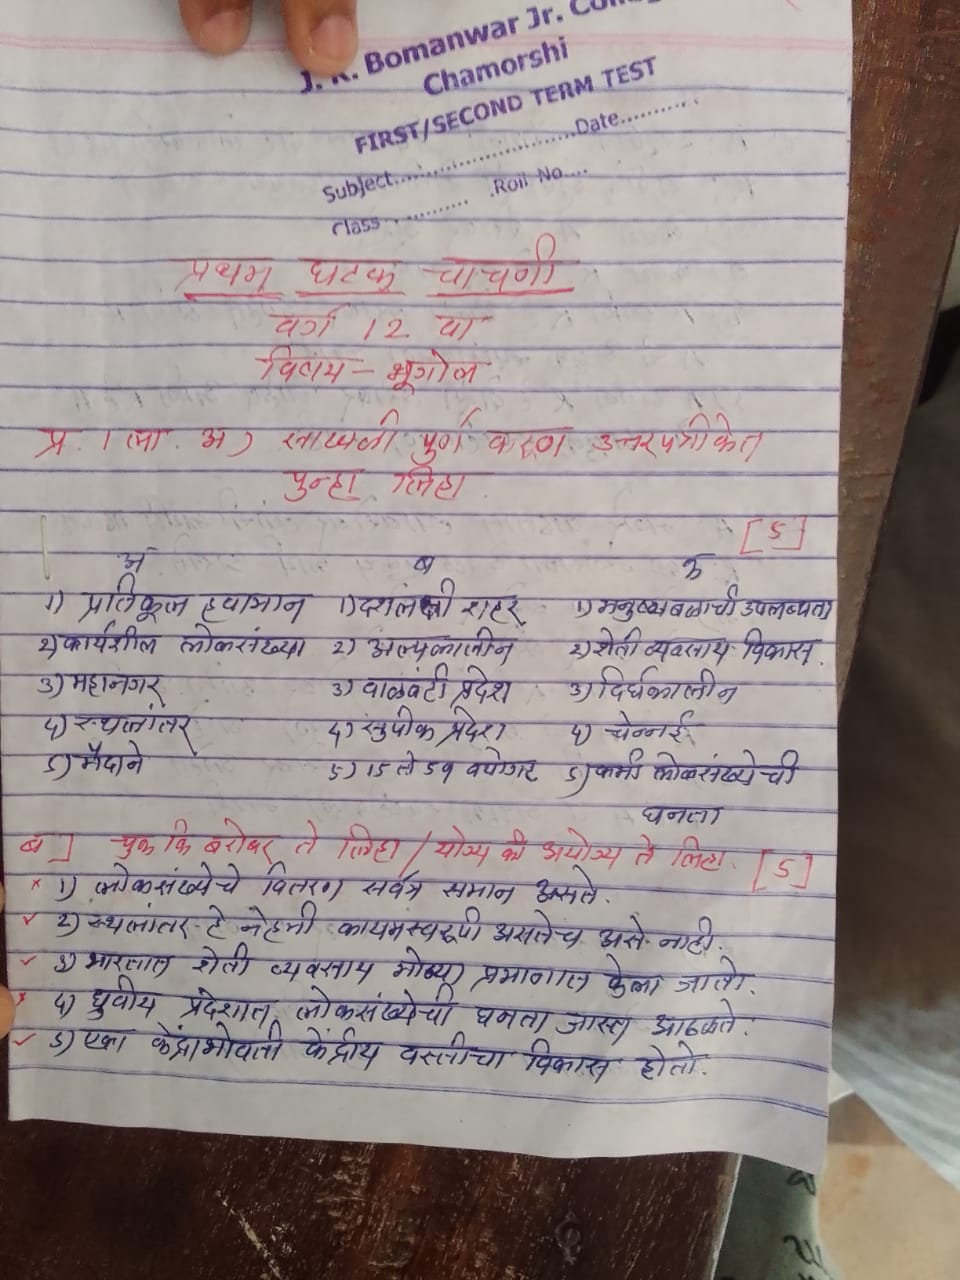 J. K. Bomanwar Jr.
Chamorshi
FIRST/SECOND TERM TEST
Subject..............................Date............
Class............ Roll No....
प्रथम घटक चाचणी
वर्ग 12 वा
विषय – भूगोल
प्र. 1 ला. अ) साखळी पुर्ण करून उत्तरपत्रीकेत
पुन्हा लिहा
[5]
अ ब क
1) प्रतिकूल हवामान 1) दशलक्षी शहर 1) मनुष्यबळाची उपलब्धता
2) कार्यशील लोकसंख्या 2) अल्पकालीन 2) शेती व्यवसाय विकास.
3) महानगर 3) वाळवंटी प्रदेश 3) दिर्घकालीन
4) स्थलांतर 4) सुपीक प्रदेश 4) चेन्नई
5) मैदाने 5) 15 ते 59 वयोगट 5) कमी लोकसंख्येची
घनता
ब] चुक कि बरोबर ते लिहा / योग्य की अयोग्य ते लिहा. [5]
× 1) लोकसंख्येचे वितरण सर्वत्र समान असते.
✓ 2) स्थलांतर हे नेहमी कायमस्वरूपी असतेच असे नाही.
✓ 3) भारतात शेती व्यवसाय मोठ्या प्रमाणात केला जातो.
× 4) ध्रुवीय प्रदेशात लोकसंख्येची घनता जास्त आढळते.
✓ 5) एका केंद्राभोवती केंद्रीय वस्तीचा विकास होतो.